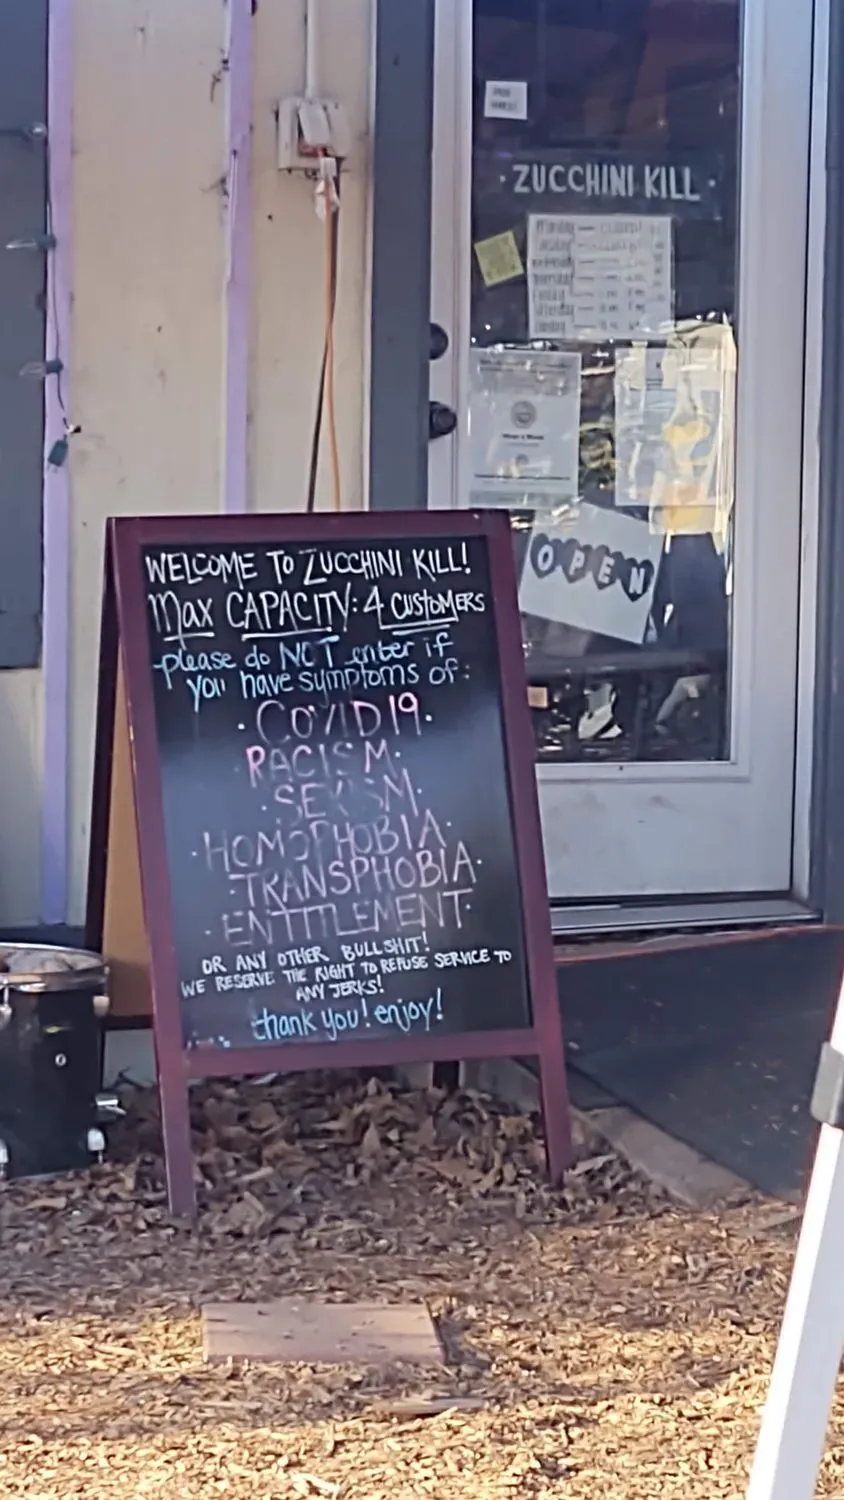 · ZUCCHINI KILL ·
OPEN
WELCOME TO ZUCCHINI KILL!
Max CAPACITY: 4 CUSTOMERS
please do NOT enter if
you have symptoms of:
· COVID19 ·
· RACISM ·
· SEXISM ·
· HOMOPHOBIA ·
· TRANSPHOBIA ·
· ENTITLEMENT ·
OR ANY OTHER BULLSHIT!
WE RESERVE THE RIGHT TO REFUSE SERVICE TO
ANY JERKS!
thank you! enjoy!